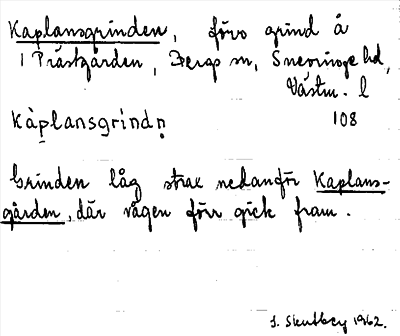 Kaplansgrinden, förv grind å
1 Prästgården, Bergs sn, Snevringe hd,
Västm. l
kàplansgrindn̥ 108
Grinden låg strax nedanför Kaplans-
gården, där vägen förr gick fram.
1962.